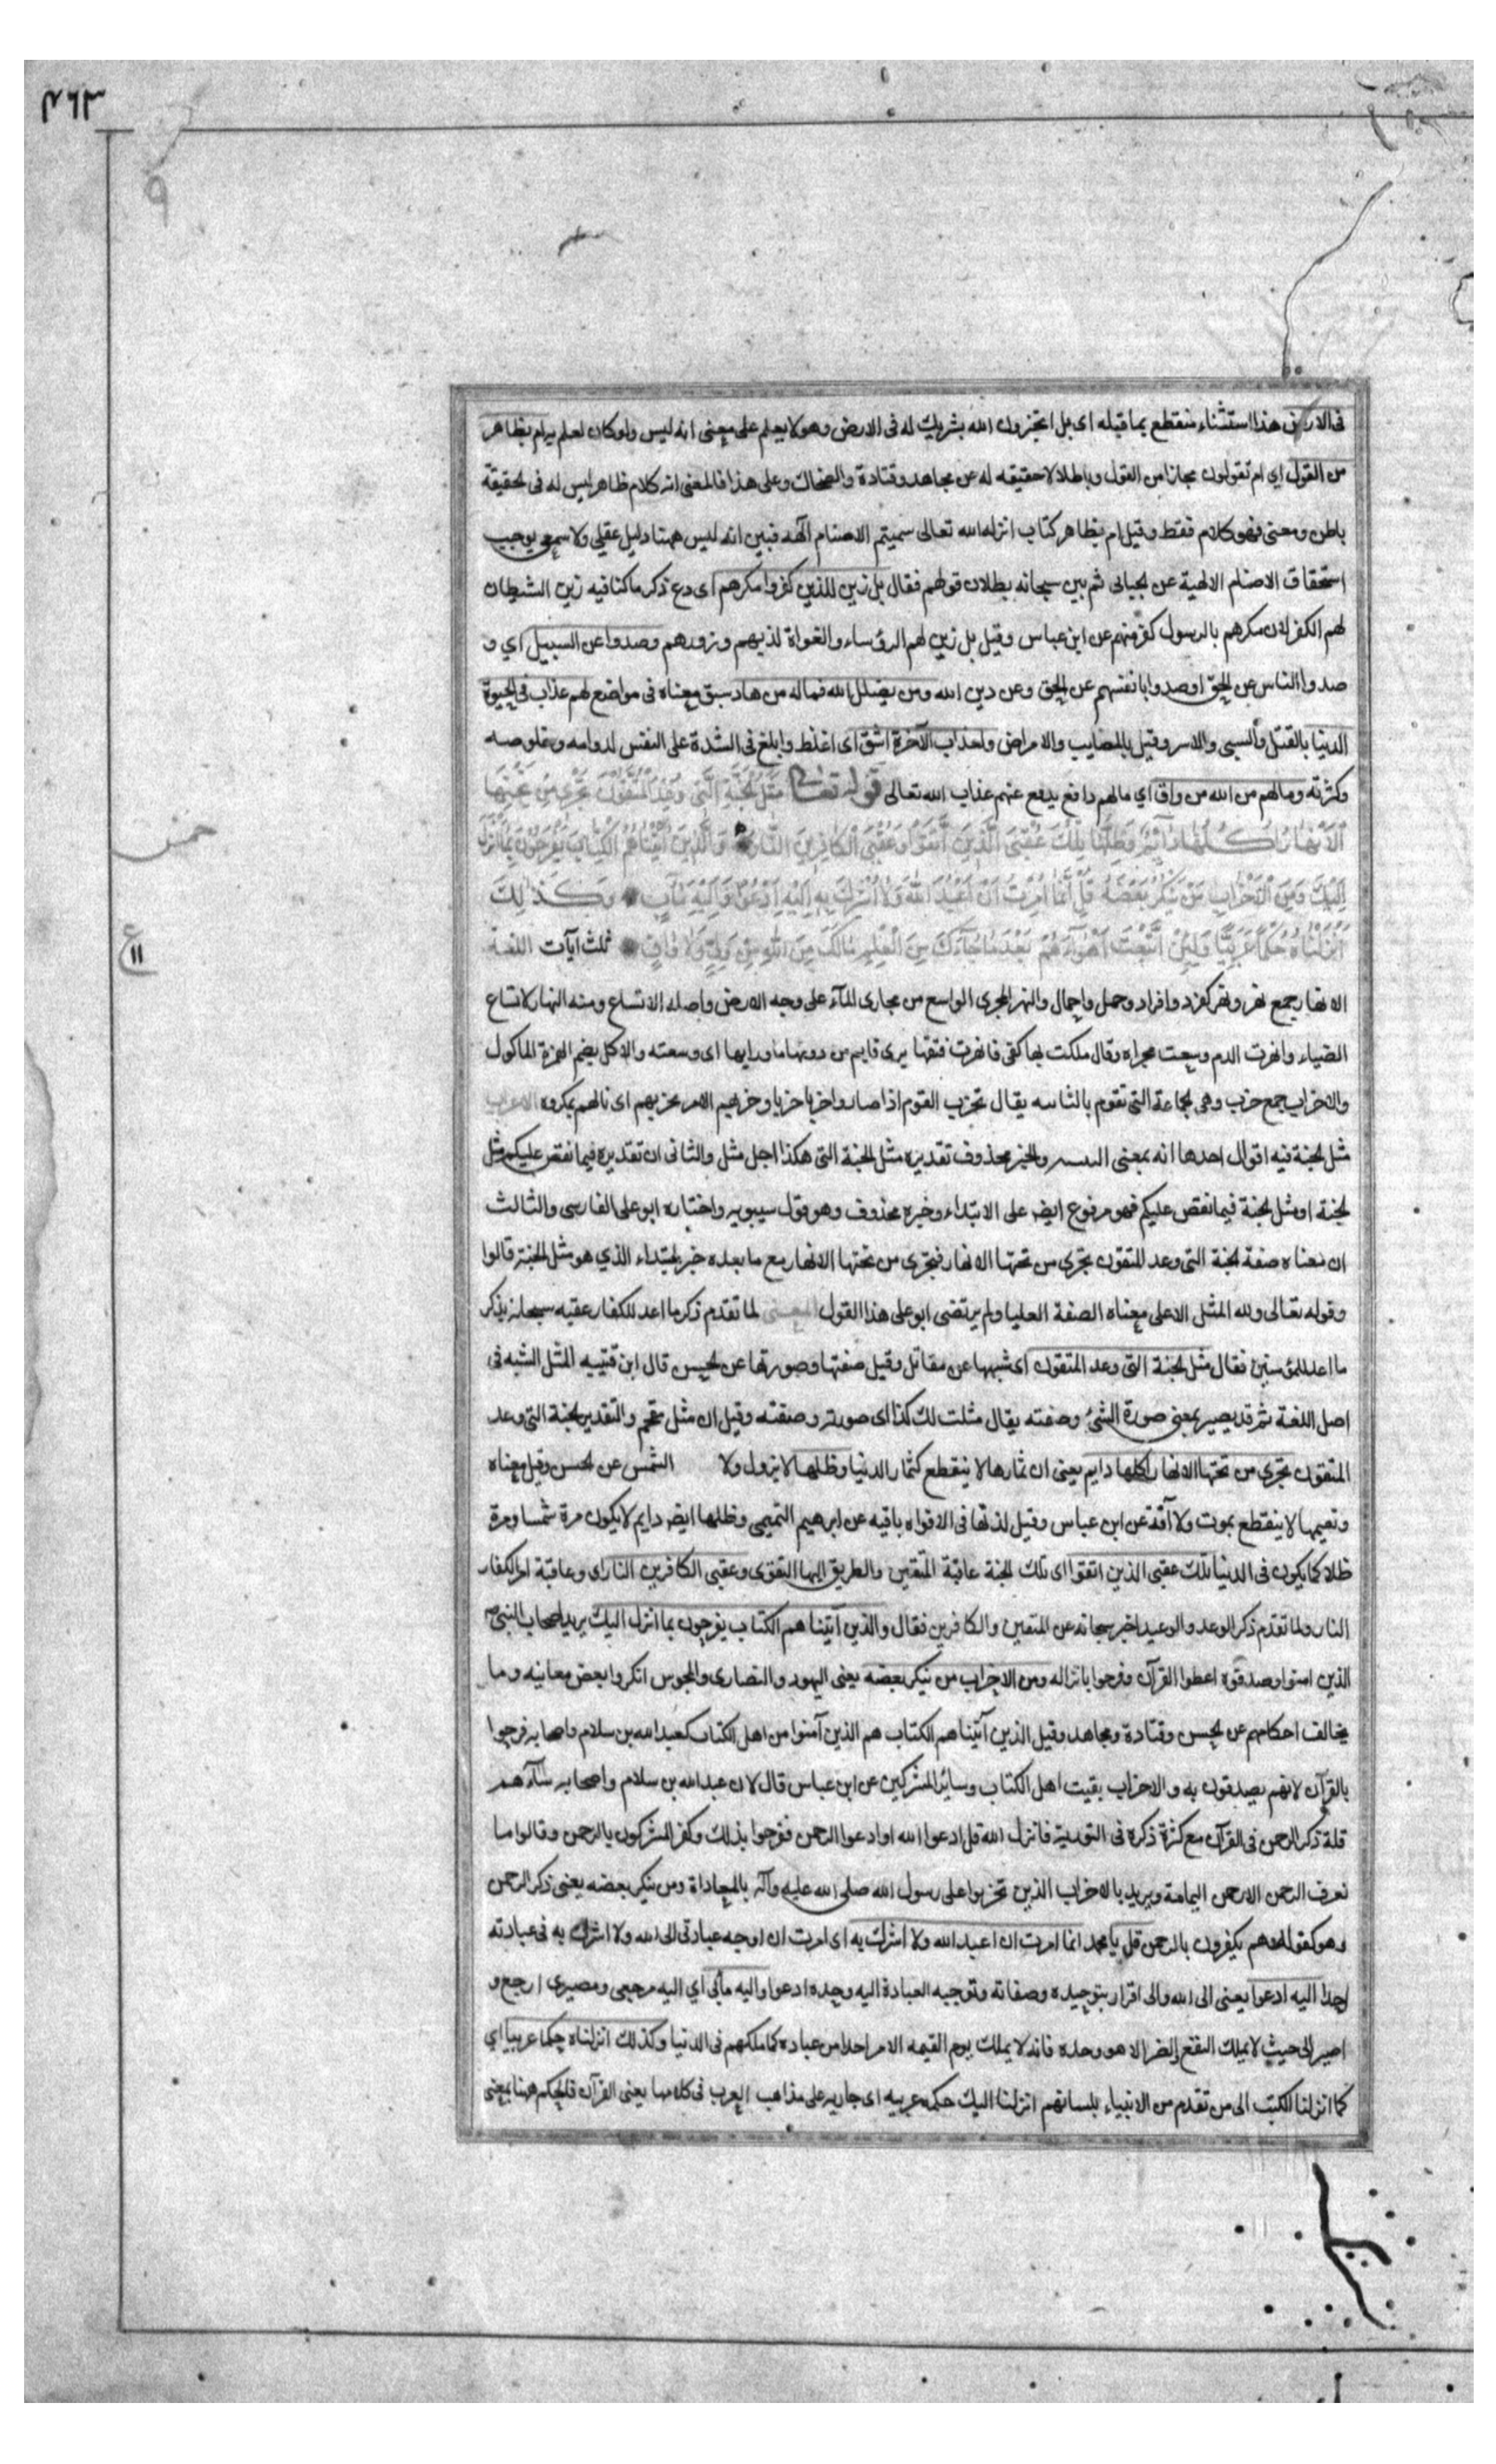 ٣٦٣
فى الارض هذا استثناء منقطع بما قبله اى بل اتخبرون الله بشريك له فى الارض وهو لا يعلم على معنى انه ليس ولو كان لعلم به ام بظاهر
من القول اي ام تقولون مجازا من القول وباطلا لا حقيقه له عن مجاهد وقتادة والضحاك وعلى هذا فالمعنى انه كلام ظاهر ليس له فى لحقيقة
باطن ومعنى فهو كلام فقط وقيل ام بظاهر كتاب انزله الله تعالى سميتم الاصنام آلهه فبين انه ليس ههنا دليل عقلي ولا سمعي يوجب
استحقاق الاصنام الالهية عن لجبائى ثم بين سبحانه بطلان قولهم فقال بل زين للذين كفروا مكرهم اى دع ذكر ما كنا فيه زين الشيطان
لهم الكفر لان مكرهم بالرسول كفر منهم عن ابن عباس وقيل بل زين لهم الرؤساء والغواة كذبهم وزورهم وصدوا عن السبيل اي و
صدوا الناس عن الحق او صدوا بانفسهم عن الحق وعن دين الله ومن يضلل الله فما له من هاد سبق معناه فى مواضع لهم عذاب فى لحيوة
الدنيا بالقتل والسبى والاسر وقيل بالمصايب والامراض ولعذاب الآخرة اشق اى اغلظ وابلغ فى الشدة على النفس لدوامه وخلوصه
وكثرته وما لهم من الله من واق اي ما لهم دافع يدفع عنهم عذاب الله تعالى قوله تعالى مثل لجنة التى وعد المتقون تجرى من تحتها
الانهار اكلها دائم وظلها تلك عقبى الذين اتقوا وعقبى الكافرين النار والذين آتيناهم الكتاب يفرحون بما انزل
خمس
اليك ومن الاحزاب من ينكر بعضه قل انما امرت ان اعبد الله ولا اشرك به اليه ادعوا واليه مآب وكذلك
انزلناه حكما عربيا ولئن اتبعت اهواءهم بعد ما جاءك من العلم مالك من الله من ولى ولا واق ثلث آيات اللغة
ع ١١
الانهار جمع نهر ونهر كفرد وافراد وجمل واجمال والنهر المجرى الواسع من مجارى المآء على وجه الارض واصله الاتساع ومنه النهار لاتساع
الضياء وانهرت الدم وسعت مجراه وقال ملكت بها كفى فانهرت فتقها يرى قايم من دونها ما ورايها اى وسعته والاكل بضم الهمزة الماكول
والاحزاب جمع حزب وهى لجماعة التى تقوم بالنائبه يقال تحزب القوم اذا صاروا حزبا حزبا وحزبهم الامر يحزبهم اى نالهم بمكروه الاعراب
مثل لجنة فيه اقوال احدها انه بمعنى الشبه والخبر محذوف تقديره مثل الجنة التى هكذا اجل مثل والثانى ان تقديره فيما نقص عليكم مثل
لجنة او مثل لجنة فيما نقص عليكم فهو مرفوع ايضا على الابتداء وخبره محذوف وهو قول سيبويه واختاره ابو على الفارسى والثالث
ان معناه صفة لجنة التى وعد المتقون تجرى من تحتها الانهار فتجرى من تحتها الانهار مع ما بعده خبر لمبتداء الذي هو مثل الجنة قالوا
وقوله تعالى ولله المثل الاعلى معناه الصفة العليا ولم يرتضى ابو على هذا القول المعنى لما تقدم ذكر ما اعد للكفار عقبه سبحانه بذكر
ما اعد للمؤمنين فقال مثل لجنة التى وعد المتقون اى شبهها عن مقاتل وقيل صفتها وصورتها عن لحسن قال ابن قتيبه المثل الشبه فى
اصل اللغة ثم قد يصير بمعنى صورة الشئ وصفته يقال مثلت لك كذا اى صورته وصفته وقيل ان مثل مقحم والتقدير لجنة التى وعد
المتقون تجرى من تحتها الانهار اكلها دايم يعنى ان ثمارها لا ينقطع كثمار الدنيا وظلها لا يزول ولا الشمس عن لحسن وقيل معناه
ونعيمها لا ينقطع بموت ولا آفة عن ابن عباس وقيل لذتها فى الافواه باقيه عن ابرهيم التميمى وظلها ايضا دايم لا يكون مرة شمسا ومرة
ظلا كما يكون فى الدنيا تلك عقبى الذين اتقوا اى تلك الجنة عاقبة المتقين والطريق اليها التقوى وعقبى الكافرين النار اى وعاقبة امر الكفار
النار ولما تقدم ذكر الوعد والوعيد اخبر سبحانه عن المتقين والكافرين فقال والذين آتيناهم الكتاب يفرحون بما انزل اليك يريد اصحاب النبى ص
الذين امنوا وصدقوه اعطوا القرآن وفرحوا بانزاله ومن الاحزاب من ينكر بعضه يعنى اليهود والنصارى والمجوس انكروا بعض معانيه وما
يخالف احكامهم عن لحسن وقتادة ومجاهد وقيل الذين آتيناهم الكتاب هم الذين آمنوا من اهل الكتاب كعبد الله بن سلام واصحابه فرحوا
بالقرآن لانهم يصدقون به والاحزاب بقيت اهل الكتاب وسائر المشركين عن ابن عباس قال لان عبد الله بن سلام واصحابه ساءهم
قلة ذكر الرحمن فى القرآن مع كثرة ذكره فى التورية فانزل الله قل ادعوا الله او ادعوا الرحمن ففرحوا بذلك وكفر المشركون بالرحمن وقالوا ما
نعرف الرحمن الا رحمن اليمامة ويريد بالاحزاب الذين تحزبوا على رسول الله صلى الله عليه وآله بالمعاداة ومن ينكر بعضه يعنى ذكر الرحمن
وهو كقوله وهم يكفرون بالرحمن قل يا محمد انما امرت ان اعبد الله ولا اشرك به اى امرت ان اوجه عبادتى الى الله ولا اشرك به فى عبادته
احدا اليه ادعوا يعنى الى الله والى اقرار بتوحيده وصفاته وتوجيه العبادة اليه وحده ادعوا واليه مآبى اي اليه مرجعى ومصيرى ارجع و
اصير الى حيث لا يملك النفع والضر الا هو وحده فانه لا يملك يوم القيمه الامر احدا من عباده كما ملكهم فى الدنيا وكذلك انزلناه حكما عربيا اي
كما انزلنا الكتب الى من تقدم من الانبياء بلسانهم انزلنا اليك حكمه عربيه اى جاريه على مذاهب العرب فى كلامها يعنى القرآن فالحكم ههنا بمعنى